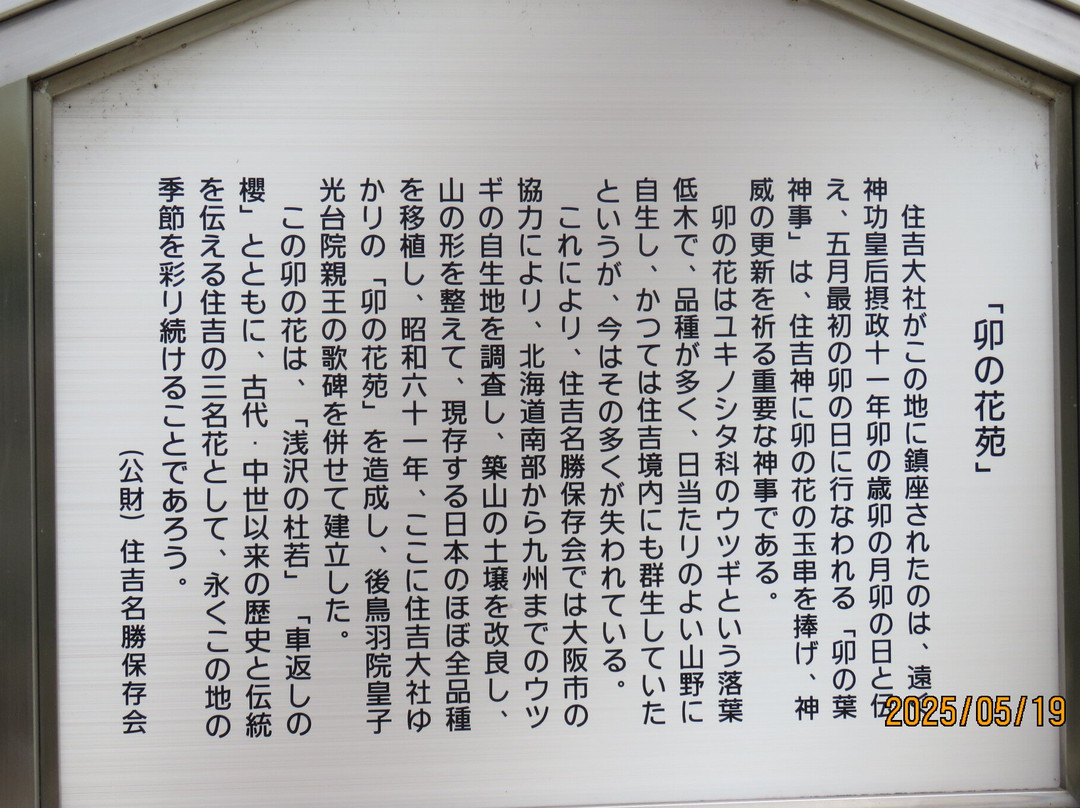 「卯の花苑」
住吉大社がこの地に鎮座されたのは、遠く
神功皇后摂政十一年卯の歳卯の月卯の日と伝
え、五月最初の卯の日に行なわれる「卯の葉
神事」は、住吉神に卯の花の玉串を捧げ、神
威の更新を祈る重要な神事である。
卯の花はユキノシタ科のウツギという落葉
低木で、品種が多く、日当たりのよい山野に
自生し、かつては住吉境内にも群生していた
というが、今はその多くが失われている。
これにより、住吉名勝保存会では大阪市の
協力により、北海道南部から九州までのウツ
ギの自生地を調査し、築山の土壌を改良し、
山の形を整えて、現存する日本のほぼ全品種
を移植し、昭和六十一年、ここに住吉大社ゆ
かりの「卯の花苑」を造成し、後鳥羽院皇子
光台院親王の歌碑を併せて建立した。
この卯の花は、「浅沢の杜若」「車返しの
櫻」とともに、古代・中世以来の歴史と伝統
を伝える住吉の三名花として、永くこの地の
季節を彩り続けることであろう。
（公財）住吉名勝保存会
2025/05/19